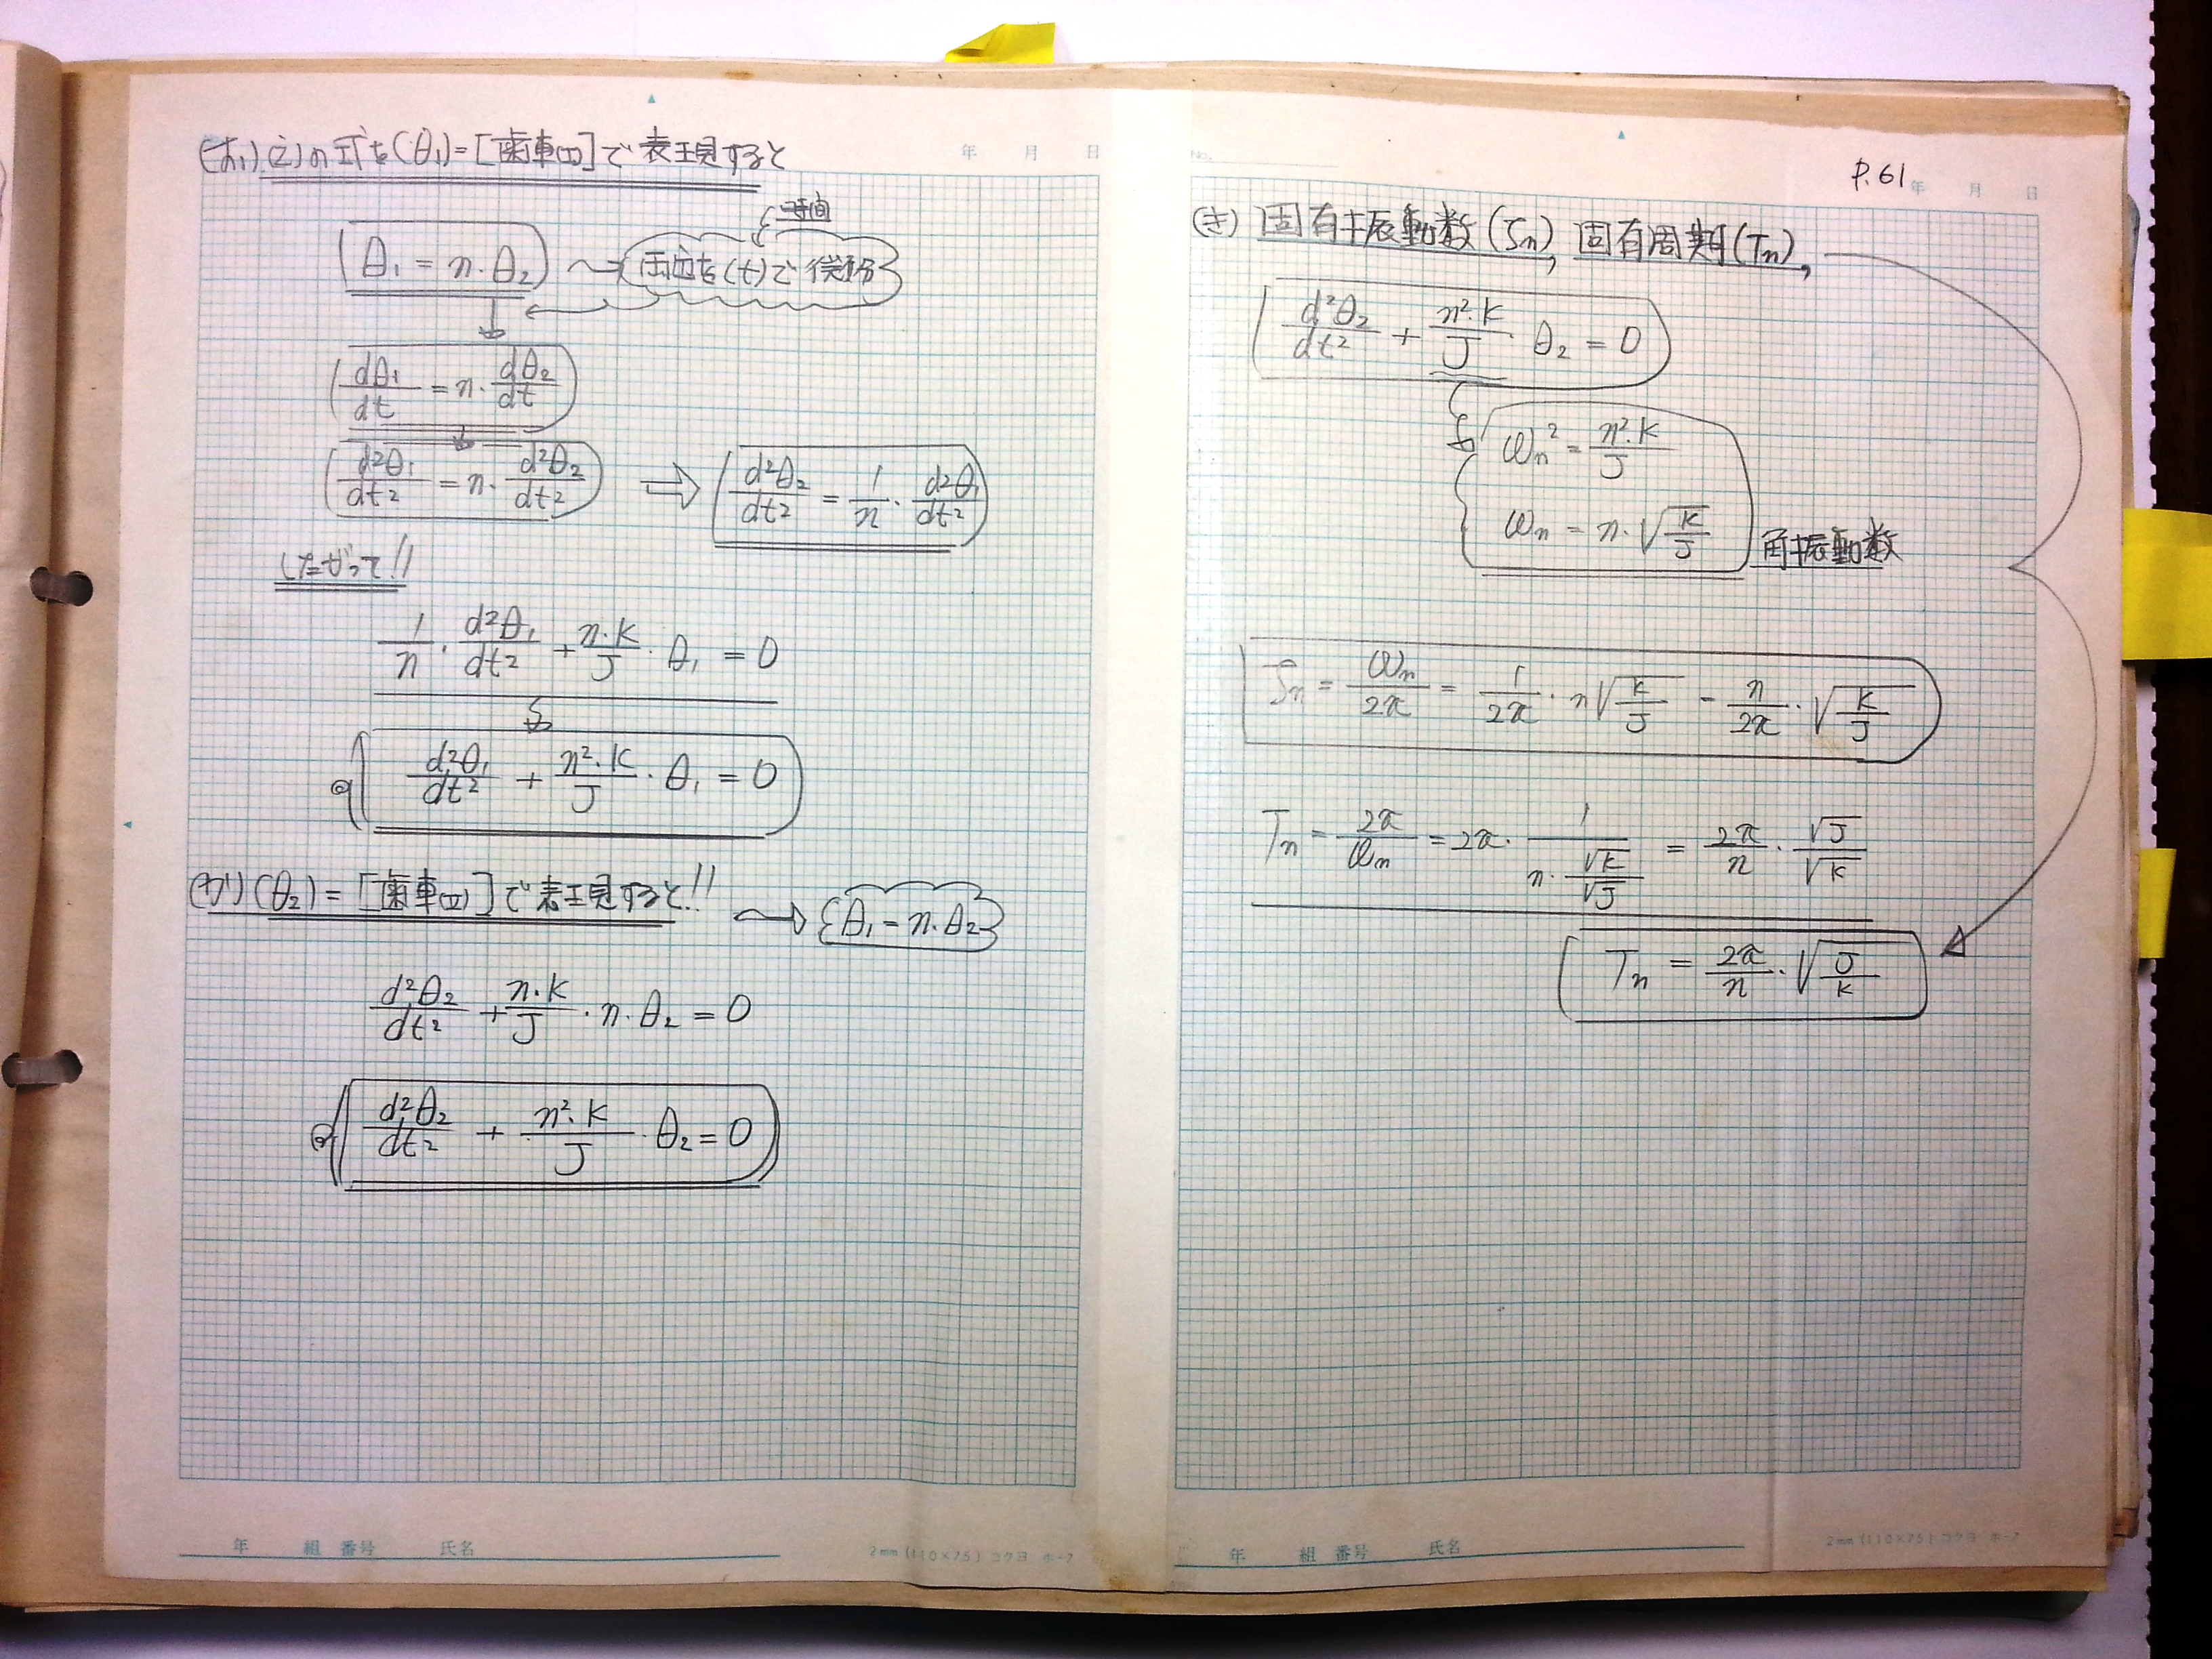 (お1)(え)の式を(θ₁)=[歯車(I)]で表現すると
年 月 日
時間
θ₁ = n・θ₂
両辺を(t)で微分
dθ₁/dt = n・dθ₂/dt
d²θ₁/dt² = n・d²θ₂/dt² ⇒ d²θ₂/dt² = 1/n・d²θ₁/dt²
したがって!!
1/n・d²θ₁/dt² + n・k/J・θ₁ = 0
d²θ₁/dt² + n²・k/J・θ₁ = 0
(か)(θ₂)=[歯車(II)]で表現すると!! → θ₁ = n・θ₂
d²θ₂/dt² + n・k/J・n・θ₂ = 0
d²θ₂/dt² + n²・k/J・θ₂ = 0
年 組 番号 氏名
2mm (110×75) コクヨ ホ-7
No.
P.61
年 月 日
(き) 固有振動数(fn), 固有周期(Tn),
d²θ₂/dt² + n²・k/J・θ₂ = 0
ωn² = n²・k/J
ωn = n・√(k/J)
角振動数
fn = ωn/2π = 1/2π・n√(k/J) = n/2π・√(k/J)
Tn = 2π/ωn = 2π・1/(n・√k/√J) = 2π/n・√J/√k
Tn = 2π/n・√(J/k)
年 組 番号 氏名
2mm (110×75) コクヨ ホ-7